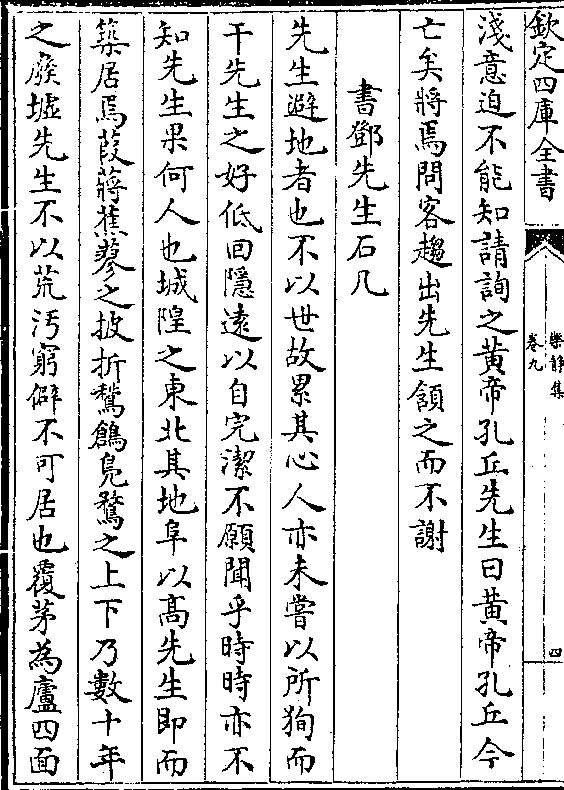 欽定四庫全書
樂靜集
卷九
四
淺意迫不能知請詢之黄帝孔丘先生曰黄帝孔丘今
亡矣將焉問客趨出先生頷之而不謝
書鄧先生石几
先生避地者也不以世故累其心人亦未嘗以所狥而
干先生之好低回隱遠以自完潔不願聞乎時時亦不
知先生果何人也城隍之東北其地阜以高先生即而
築居焉葭蔣蕉蓼之披折鶖鶬鳧鶩之上下乃數十年
之廢墟先生不以荒汚窮僻不可居也覆茅為廬四面